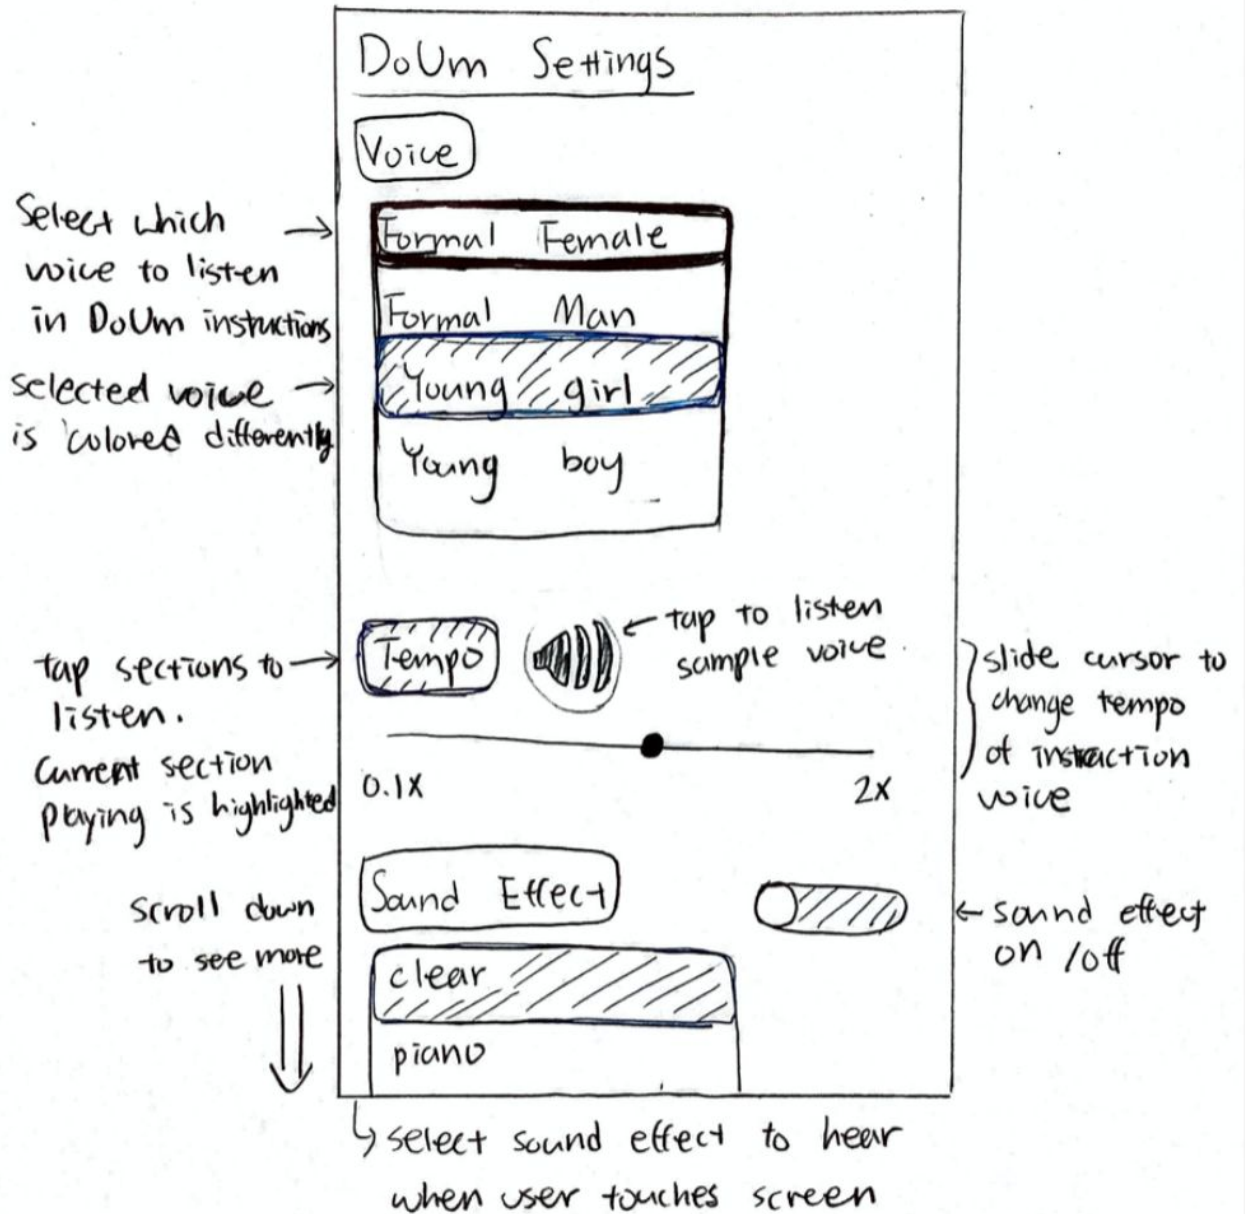 DoUm Settings
Voice
Select which
voice to listen
in DoUm instuctions
Formal Female
Formal Man
selected voice
is colored differently
Young girl
Young boy
tap sections to
listen.
Current section
playing is highlighted
Tempo
tap to listen
sample voice.
slide cursor to
change tempo
of instraction
voice
0.1X
2X
Scroll down
to see more
Sound Effect
sound effect
on / off
clear
piano
select sound effect to hear
when user touches screen